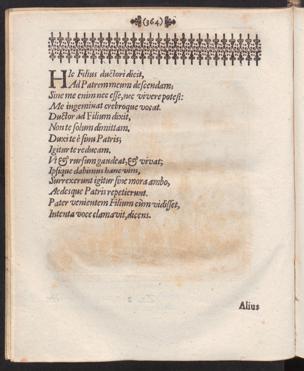 (364)
HIc Filius ductori dicit,
Ad Patrem meum descendam;
Sine me enim nec esse, nec vivere potest:
Me ingeminat crebroque vocat.
Ductor ad Filium dixit,
Non te solum dimittam,
Duxi te è sinu Patris,
Igitur te reducam.
Vt & rursum gaudeat, & vivat;
Ipsique dabimus hanc vim,
Surrexerunt igitur sine mora ambo,
Aedesque Patris repetierunt.
Pater venientem Filium cùm vidisset,
Intenta voce clamavit, dicens.
Alius